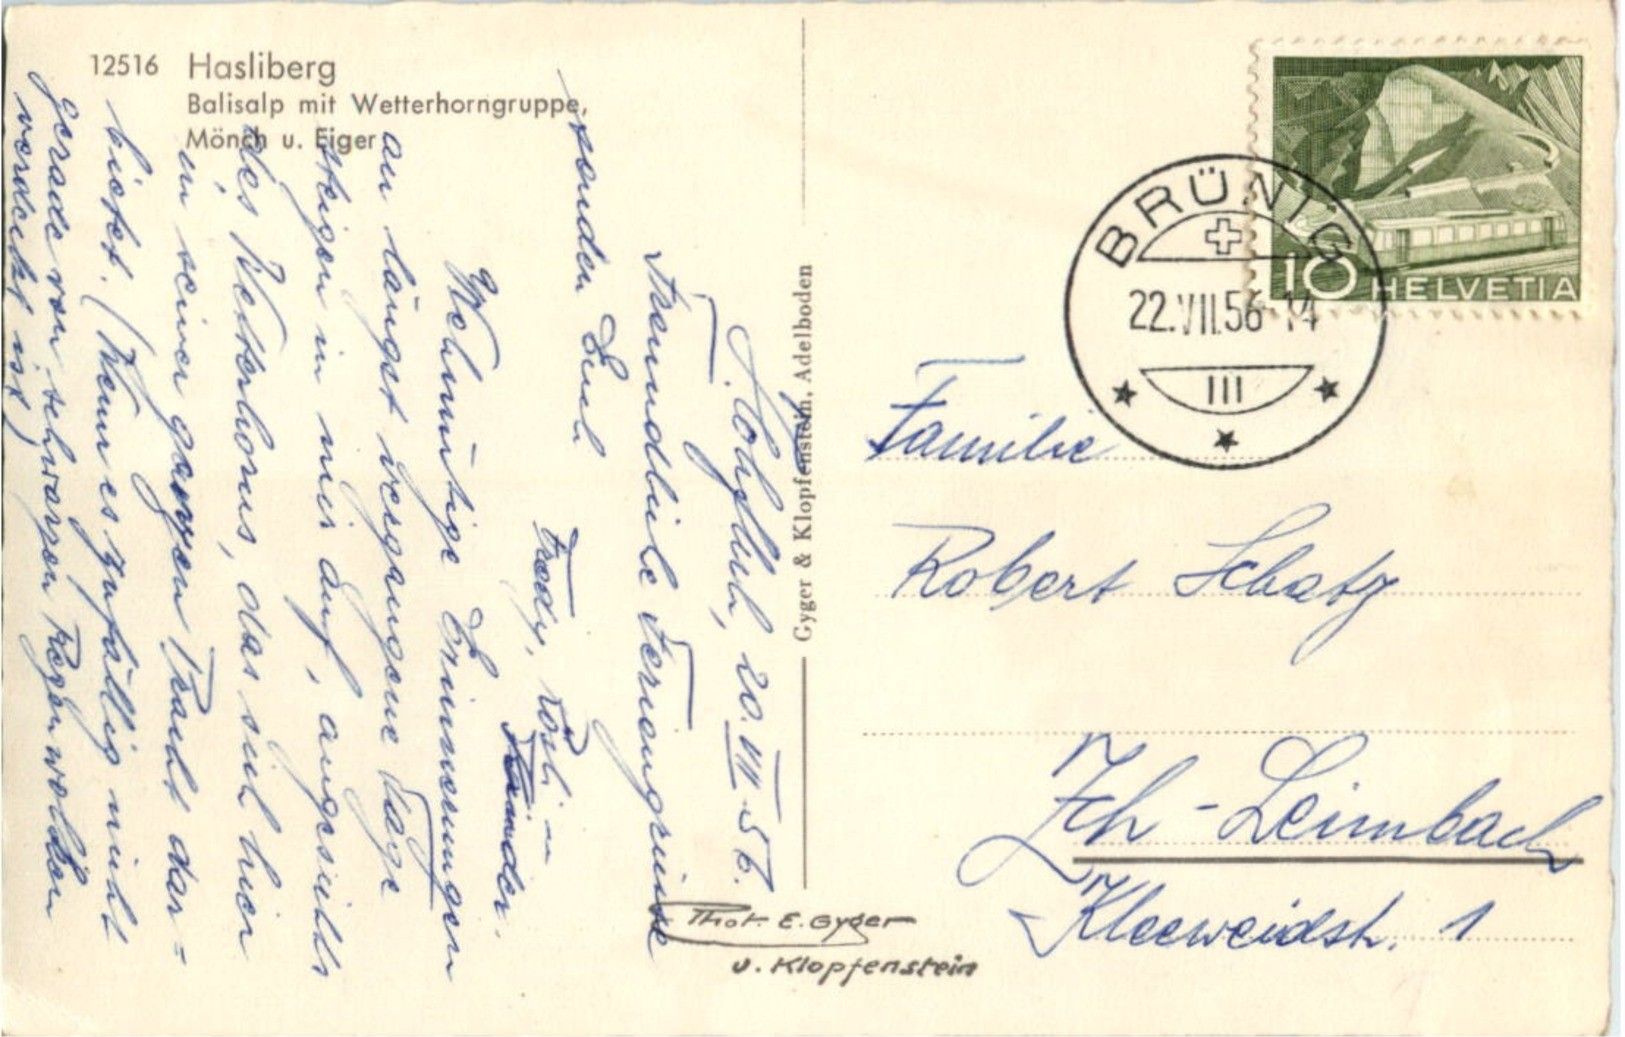 12516 Hasliberg
Balisalp mit Wetterhorngruppe,
Mönch u. Eiger
Hohfluh, 20. VII. 56.
Freundliche Feriengrüsse
senden Euch
Fredy, Rösli
Wehmütige Erinnerungen
an längst vergangene Tage
steigen in mir auf, angesichts
des Wetterhorns, das sich hier
in seiner ganzen Pracht dar-
bietet. (Wenn es zufällig nicht
gerade von schwarzen Regenwolken
verdeckt ist)
Gyger & Klopfenstein, Adelboden
Phot. E. Gyger
u. Klopfenstein
BRÜNIG
22.VII.56-14
III
10 HELVETIA
Familie
Robert Schatz
Zch - Leimbach
Kleeweidstr. 1